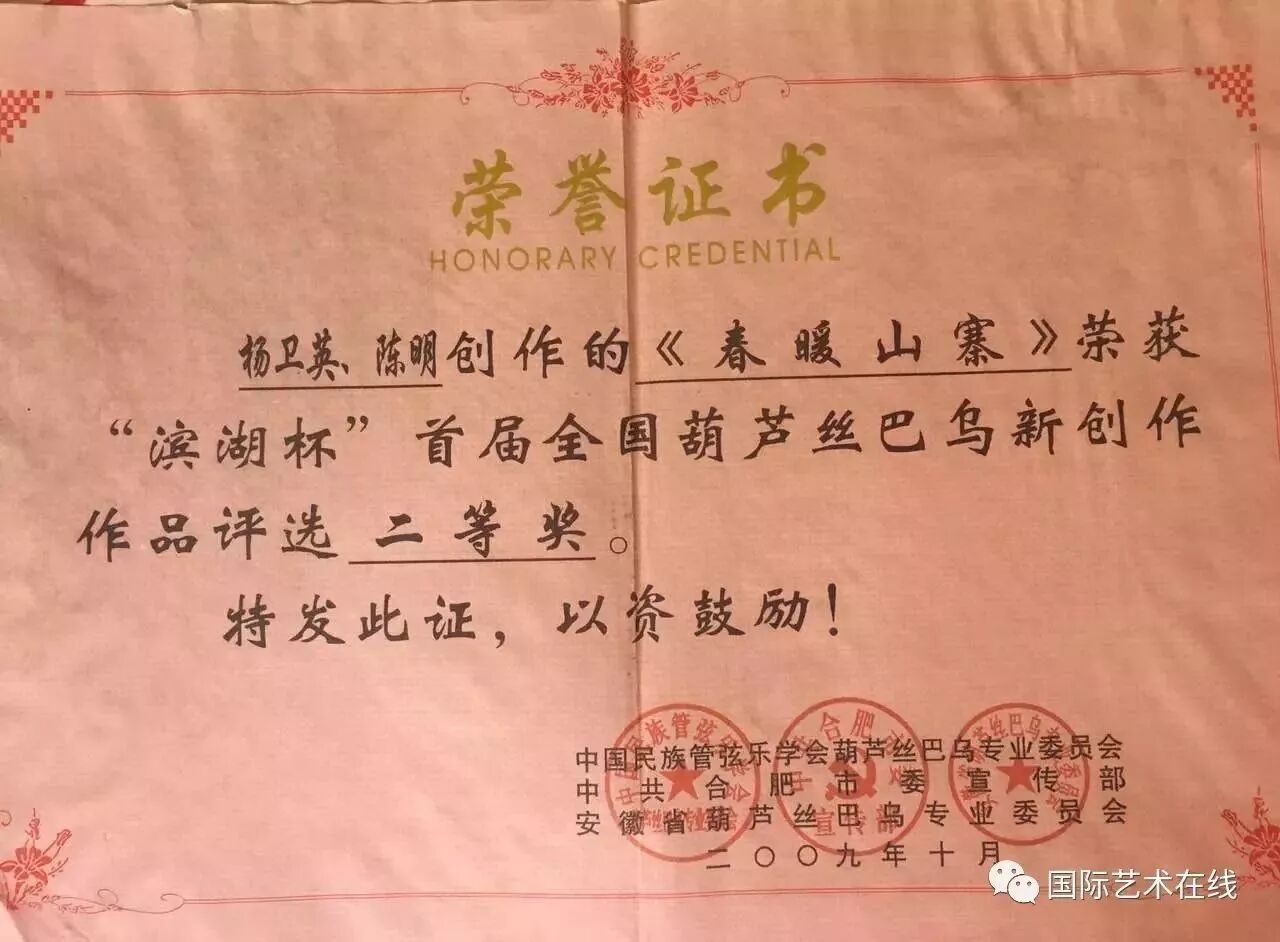 荣誉证书
HONORARY CREDENTIAL
杨卫英、陈明创作的《春暖山寨》荣获
“滨湖杯”首届全国葫芦丝巴乌新创作
作品评选二等奖。
特发此证，以资鼓励！
中国民族管弦乐学会葫芦丝巴乌专业委员会
中共合肥市委宣传部
安徽省葫芦丝巴乌专业委员会
二〇〇九年十月
国际艺术在线